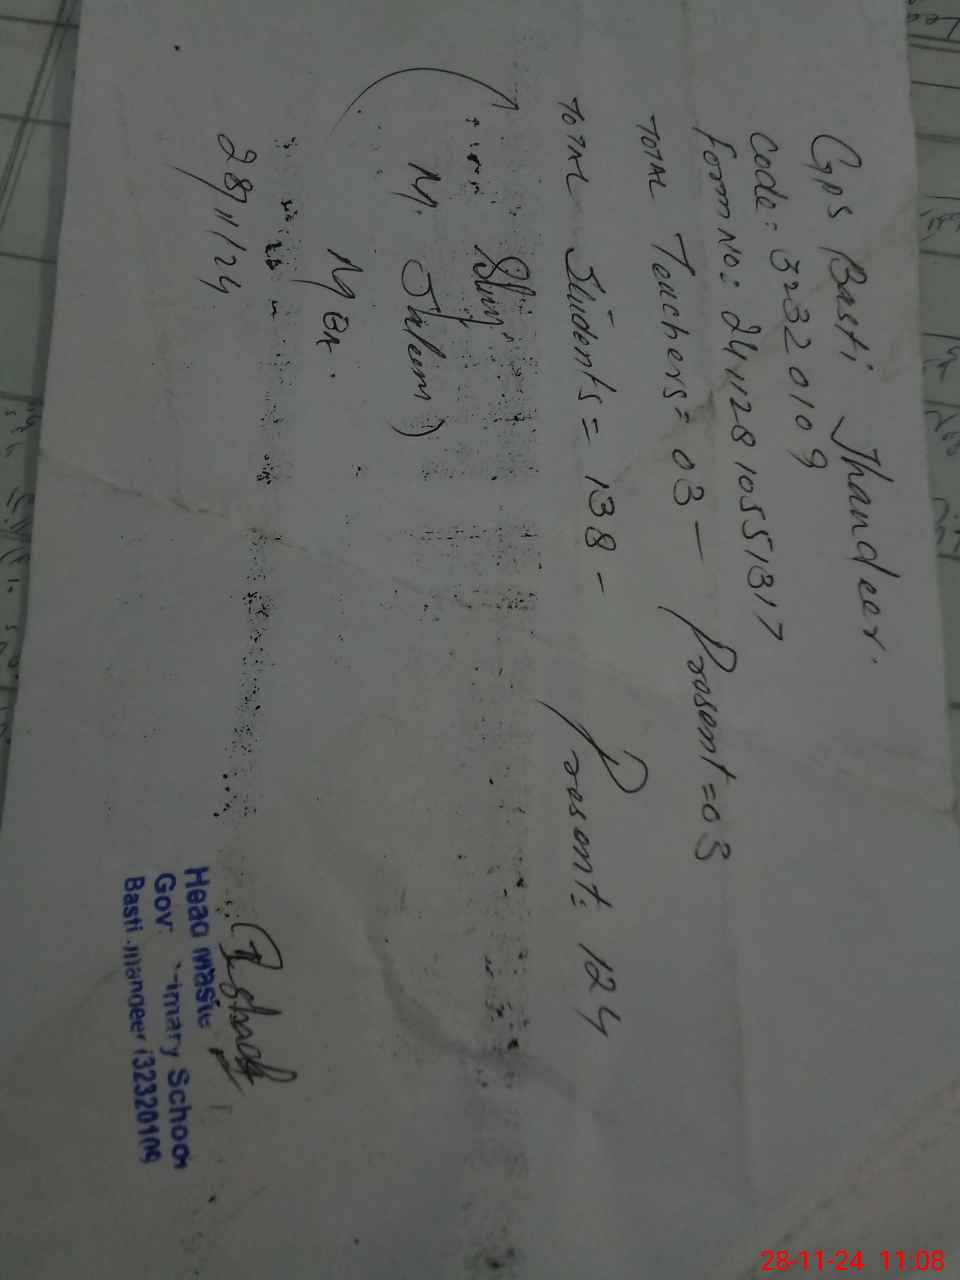 GPS Basti Jhandeer.
Code: 32320109
Form No: 24112810551317
Total Teachers = 03 - Present = 03
Total Students = 138 - Present = 124
(M. Saleem)
28/11/24
Head Maste
Gov: imary School
Basti (32320109
28-11-24 11:08